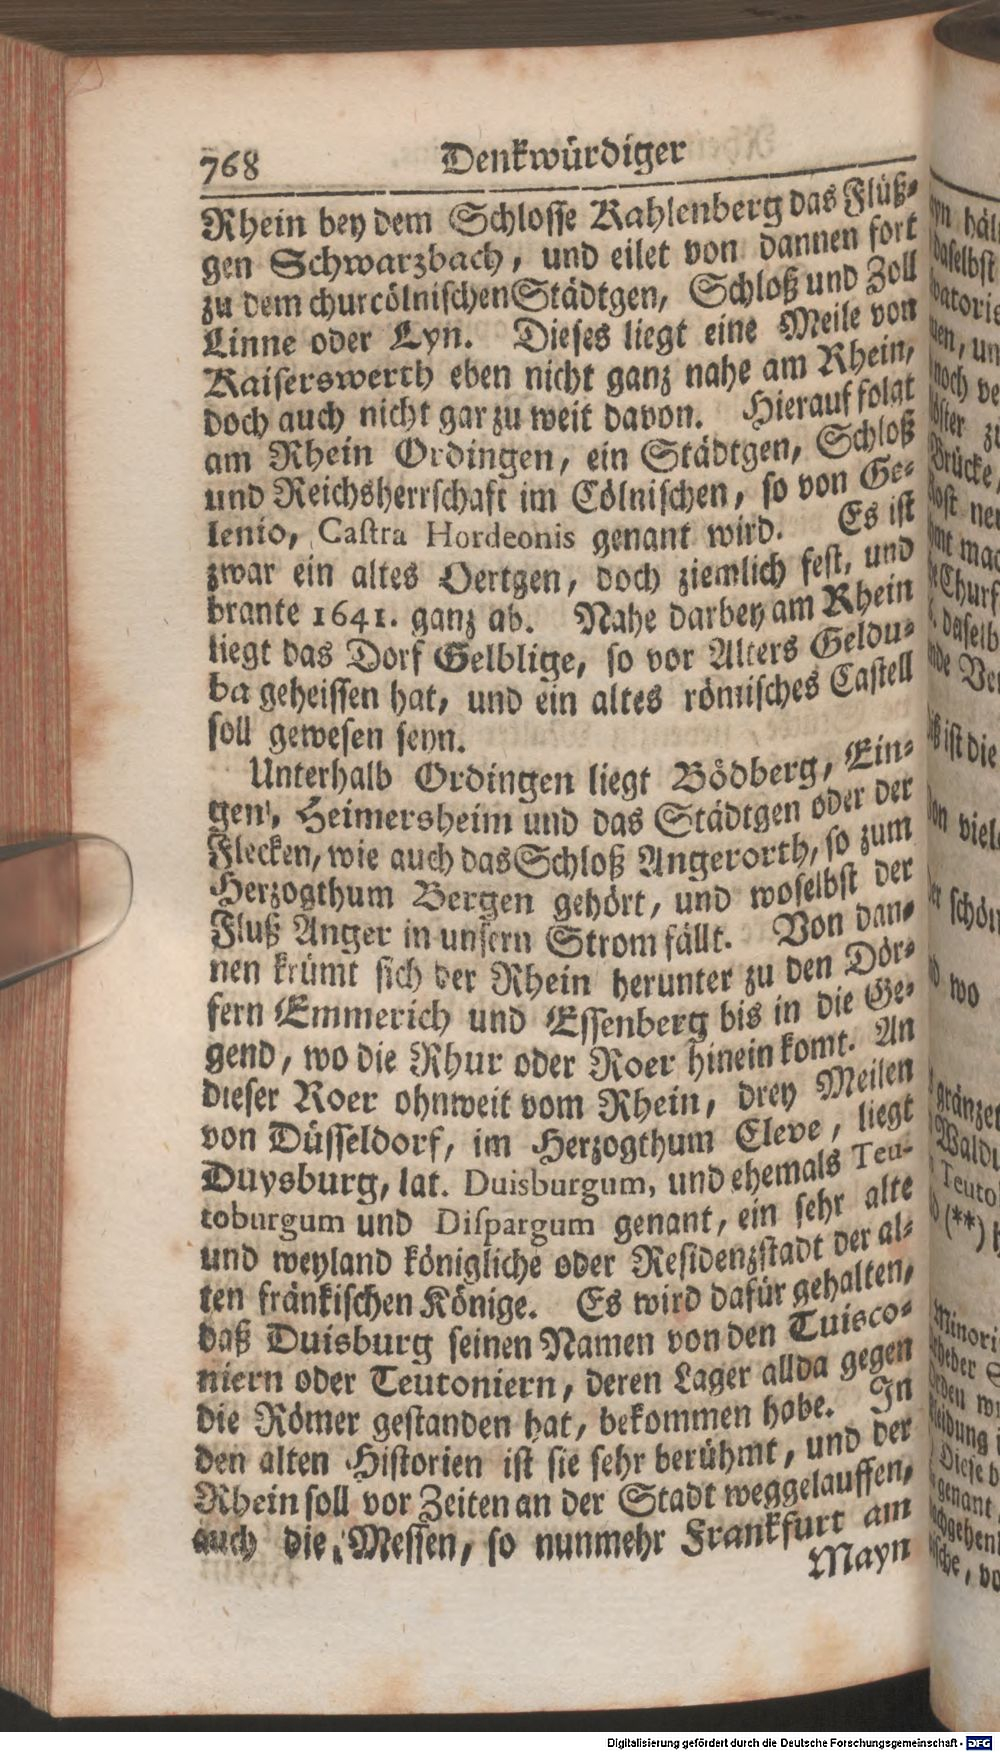 768 Denkwürdiger
Rhein bey dem Schlosse Kahlenberg das Flüß-
gen Schwarzbach, und eilet von dannen fort
zu dem churcölnischen Städtgen, Schloß und Zoll
Linne oder Lyn. Dieses liegt eine Meile von
Kaiserswerth eben nicht ganz nahe am Rhein,
doch auch nicht gar zu weit davon. Hierauf folgt
am Rhein Ordingen, ein Städtgen, Schloß
und Reichsherrschaft im Cölnischen, so von Ge-
lenio, Castra Hordeonis genant wird. Es ist
zwar ein altes Oertgen, doch ziemlich fest, und
brante 1641. ganz ab. Nahe darbey am Rhein
liegt das Dorf Gelblige, so vor Alters Geldu-
ba geheissen hat, und ein altes römisches Castell
soll gewesen seyn.
Unterhalb Ordingen liegt Bödberg, Ein-
gen, Heimersheim und das Städtgen oder der
Flecken, wie auch das Schloß Angerorth, so zum
Herzogthum Bergen gehört, und woselbst der
Fluß Anger in unsern Strom fällt. Von dan-
nen krümt sich der Rhein herunter zu den Dör-
fern Emmerich und Essenberg bis in die Ge-
gend, wo die Rhur oder Roer hinein komt. An
dieser Roer ohnweit vom Rhein, drey Meilen
von Düsseldorf, im Herzogthum Cleve, liegt
Duysburg, lat. Duisburgum, und ehemals Teu-
toburgum und Dispargum genant, ein sehr alte
und weyland königliche oder Residenzstadt der al-
ten fränkischen Könige. Es wird dafür gehalten,
daß Duisburg seinen Namen von den Tuisco-
niern oder Teutoniern, deren Lager allda gegen
die Römer gestanden hat, bekommen habe. In
den alten Historien ist sie sehr berühmt, und der
Rhein soll vor Zeiten an der Stadt weggelauffen,
auch die Messen, so nunmehr Frankfurt am
Mayn
Digitalisierung gefördert durch die Deutsche Forschungsgemeinschaft - DFG